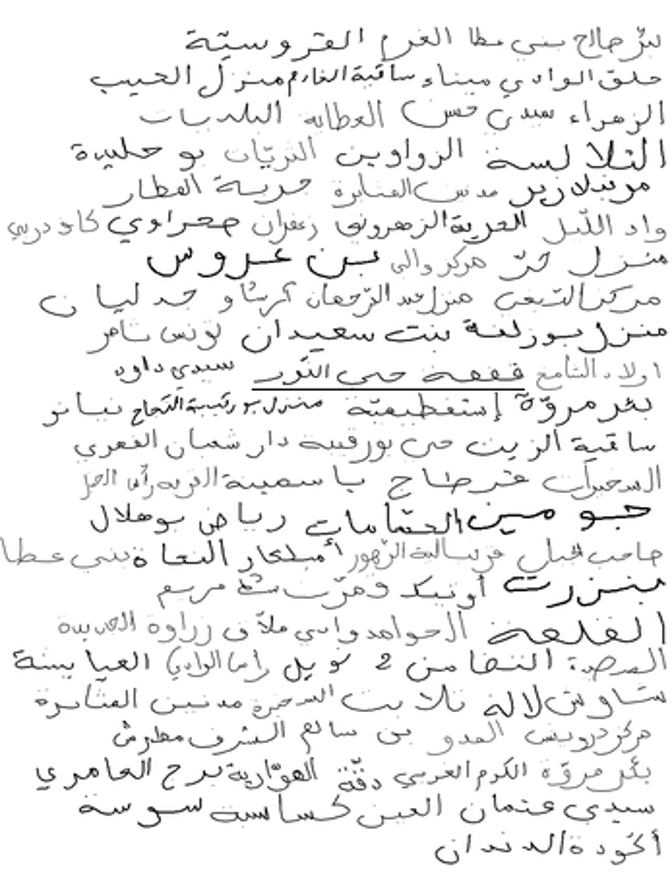 بئر صالح بني عطا الغرم القروسيّة
حلق الوادي ميناء ساقية الخادم منزل الحبيب
الزهراء سيدي حسن العطايا البلديات
الثلالسة الزواوين التريّان بو حليدة
مرناز زير مدنين المنايرة جربة العطار
واد الليل العربة الزهروني زعفران صحراوي
منزل حرّ مركز والي بن عروس
مركز الشعبي منزل عبد الرّحمان كريشاو جدليان
منزل بوزلفة بنت سعيدان تونس ثامر
أولاد الشامخ قفصة حي النّور سيدي داود
بئر مروّة إستفطيمية منزل بورقيبة النجاح نيانو
ساقية الزيت حي بورقيبة دار شعبان الفهري
السخيرات قرطاج ياسمينة القرية رأس الجبل
جومين الحمّامات رياض بوهلال
صاحب الجبل فريسالية الزّهور أم لمجار النجاة بني عطا
بنزرت أوتيك ومرّت شط مريم
القلعة الحوامد وادي ملاّق زراوة الجديدة
المرصد النفا من 2 كويل رأس الوادي العيايشة
شاوش لالة تلابت السخيرة مدنين المنايرة
مركز درويش العدو بن سالم الشرف مطرش
بئر مروّة الكرم الغربي دقّة الهوّارية برج العامري
سيدي عثمان العين كساسبة سوسة
أكودة الدندان